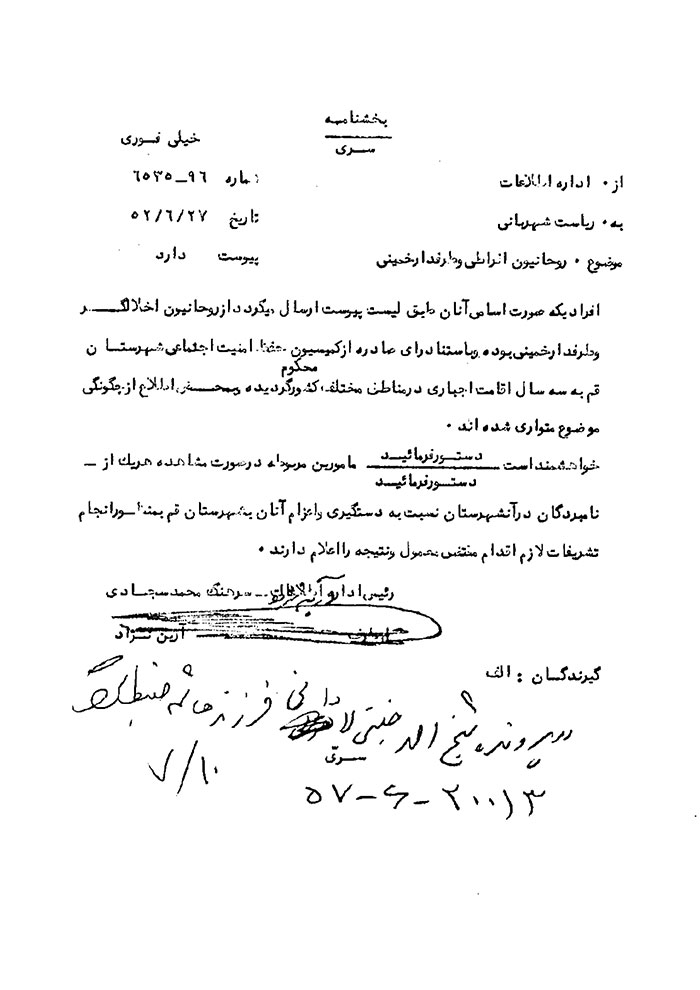 بخشنامه
سری
خیلی فوری
از . اداره اطلاعات
شماره ۹۶ــ۶۵۳۵
به . ریاست شهربانی
تاریخ ۵۲/۶/۲۷
موضوع . روحانیون افراطی وطرفدارخمینی
پیوست دارد
افرادیکه صورت اسامی آنان طبق لیست پیوست ارسال میگردد ازروحانیون اخلالگر
وطرفدارخمینی بوده وباستناد رای صادره ازکمیسیون حفظ امنیت اجتماعی شهرستان
محکوم
قم به سه سال اقامت اجباری درمناطق مختلف کشورگردیده وبمحض اطلاع ازچگونگی
موضوع متواری شده اند .
خواهشمند است دستورفرمائید مامورین مربوطه درصورت مشاهده هریک از ــ
دستورفرمائید
نامبردگان درآنشهرستان نسبت به دستگیری واعزام آنان بشهرستان قم بمنظورانجام
تشریفات لازم اقدام مقتضی معمول ونتیجه رااعلام دارند .
رئیس اداره اطلاعات ــ سرهنگ محمدسجادی
ازطرف آرین نژاد
گیرندگان : الف
پرونده شیخ جنتی لادانی فرزند هاشم ضبط
سری
۷/۱۰
۵۷-۶-۲۰۰۱۳